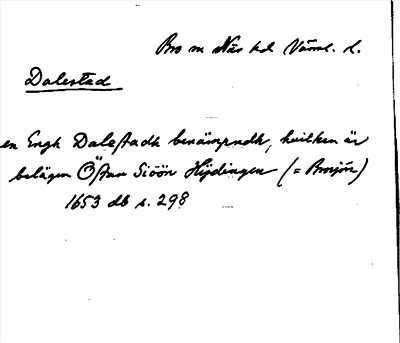 Bro sn Näs hd Värml. l.
Dalestad
en Engh Dalestadh benämpndh, huilken är
belägen Östan Siöön Hijdingen (= Brosjön)
1653 db s. 298